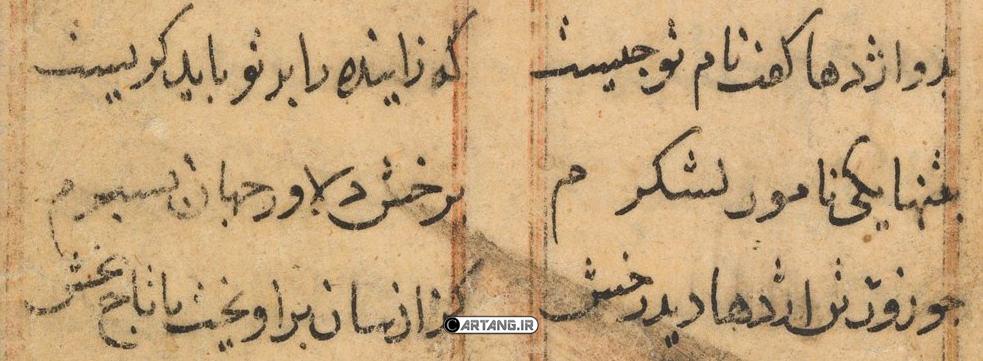 بدو اژدها کفت نام تو جیست که زاینده را بر تو باید کریست
بتنها یکی نامور لشکرم برخش دلاور جهان بسبرم
جو زور تن اژدها دید رخش کزان سان براویخت با تاج بخش
CARTANG.IR